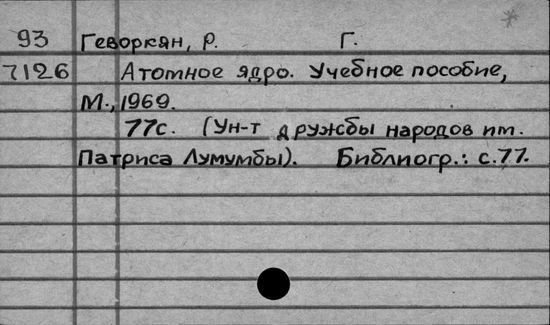 93 Геворкян, Р. Г.
7126 Атомное ядро. Учебное пособие,
М., 1969.
77с. (Ун-т дружбы народов им.
Патриса Лумумбы). Библиогр.: с.77.